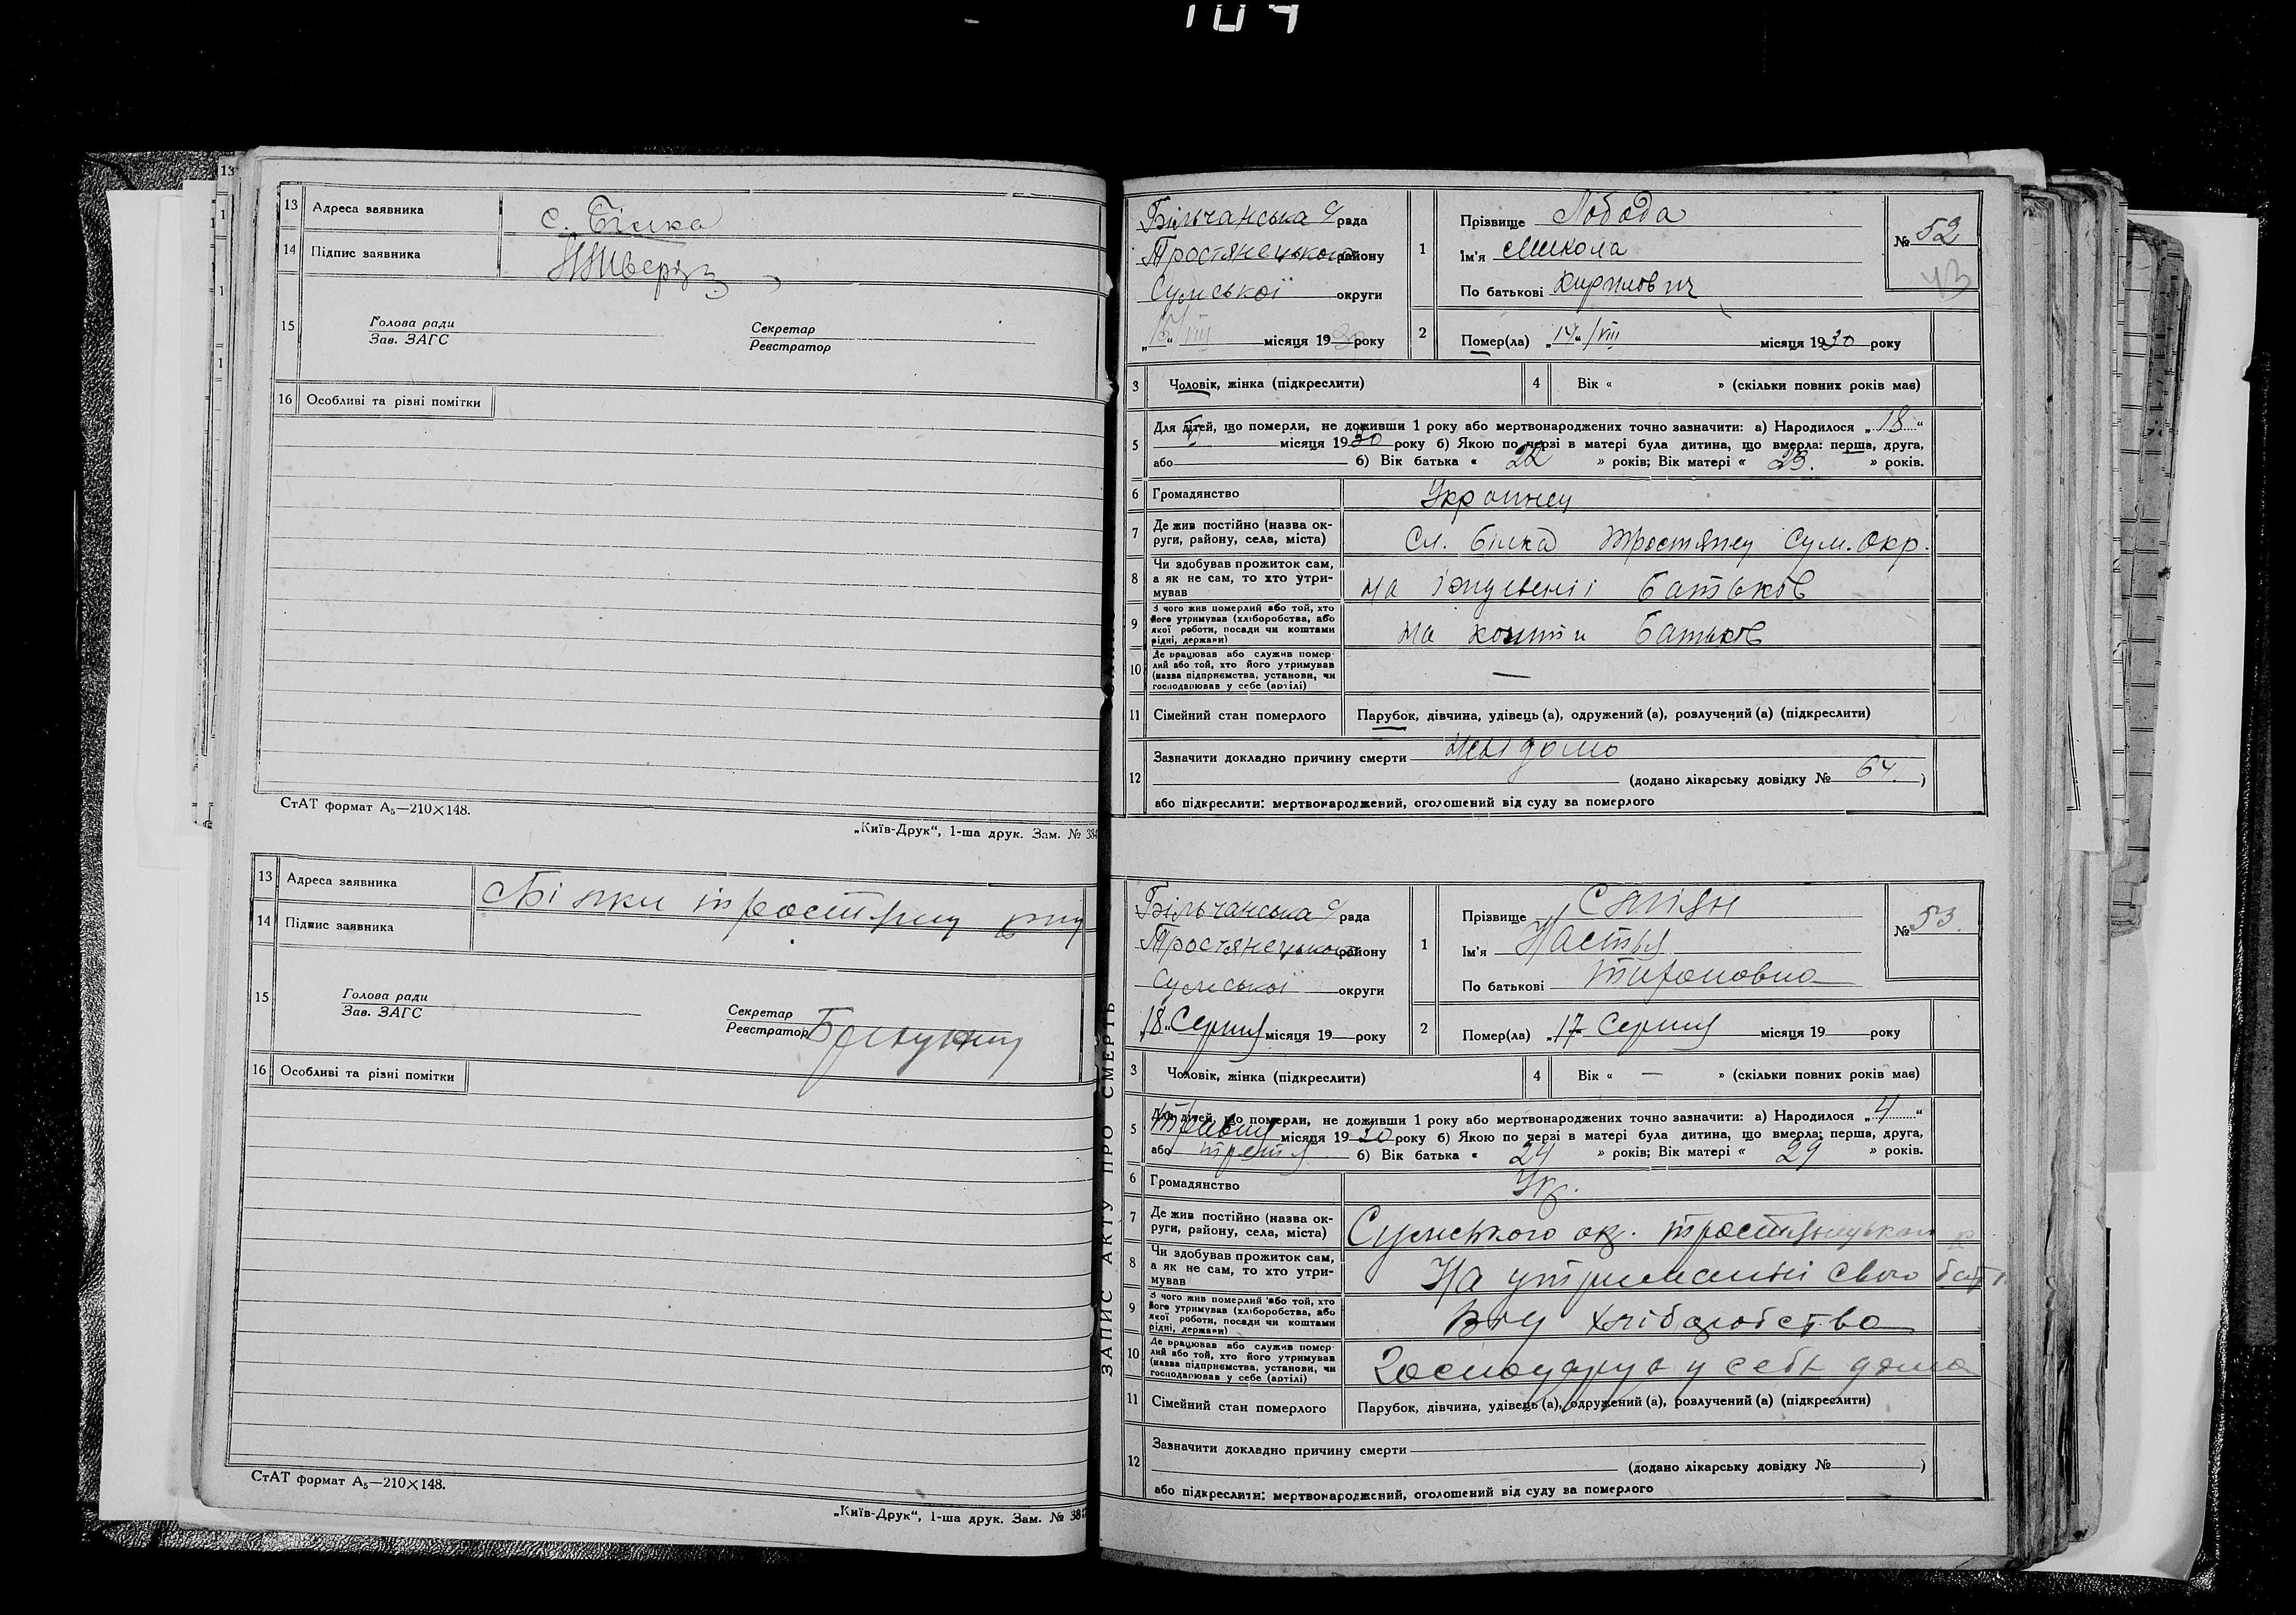 104
13 Адреса заявника с. Білка
14 Підпис заявника
15 Голова ради Секретар
Зав. ЗАГС Реєстратор
16 Особливі та різні помітки
СтАТ формат А₅—210×148.
„Київ-Друк“, 1-ша друк. Зам. № 38
13 Адреса заявника
14 Підпис заявника
15 Голова ради Секретар
Зав. ЗАГС Реєстратор
16 Особливі та різні помітки
СтАТ формат А₅—210×148.
„Київ-Друк“, 1-ша друк. Зам. № 38
Більчанська с/рада
Тростянецького району
Сумської округи
місяця 19 року
1 Прізвище Лобода
Ім'я Микола
По батькові Кирилович
№ 52
43
2 Помер(ла) „14“ /VIII місяця 1930 року
3 Чоловік, жінка (підкреслити)
4 Вік « » (скільки повних років має)
5 Для дітей, що померли, не доживши 1 року або мертвонароджених точно зазначити: а) Народилося „18“
місяця 1930 року б) Якою по черзі в матері була дитина, що вмерла: перша, друга,
або б) Вік батька « 22 » років; Вік матері « 23. » років.
6 Громадянство Українец
7 Де жив постійно (назва округи, району, села, міста) Сл. Білка Тростянец Сум. Окр.
8 Чи здобував прожиток сам, а як не сам, то хто утримував на батьков
9 З чого жив померлий або той, хто його утримував (хліборобства, або якої роботи, посади чи коштами рідні, держави) на кошти батьков
10 Де працював або служив померлий або той, хто його утримував (назва підприємства, установи, чи господарював у себе (артілі) —
11 Сімейний стан померлого Парубок, дівчина, удівець (а), одружений (а), розлучений (а) (підкреслити)
12 Зазначити докладно причину смерти невідомо
(додано лікарську довідку № 64. )
або підкреслити: мертвонароджений, оголошений від суду за померлого
ЗАПИС АКТУ ПРО СМЕРТЬ
Більчанська с/рада
Тростянецького району
Сумської округи
„18“ Серпня місяця 19 року
1 Прізвище
Ім'я Настья
По батькові
№ 53.
2 Помер(ла) „17“ Серпня місяця 19 року
3 Чоловік, жінка (підкреслити)
4 Вік « — » (скільки повних років має)
5 Для дітей, що померли, не доживши 1 року або мертвонароджених точно зазначити: а) Народилося „4“
Травня місяця 1930 року б) Якою по черзі в матері була дитина, що вмерла: перша, друга,
або третя б) Вік батька « 24 » років; Вік матері « 29 » років.
6 Громадянство Укр.
7 Де жив постійно (назва округи, району, села, міста) Сумського ок. Тростянецького
8 Чи здобував прожиток сам, а як не сам, то хто утримував На утриманні свого бать
9 З чого жив померлий або той, хто його утримував (хліборобства, або якої роботи, посади чи коштами рідні, держави) Від хліборобства
10 Де працював або служив померлий або той, хто його утримував (назва підприємства, установи, чи господарював у себе (артілі) Господарує у себе дома
11 Сімейний стан померлого Парубок, дівчина, удівець (а), одружений (а), розлучений (а) (підкреслити)
12 Зазначити докладно причину смерти
(додано лікарську довідку № )
або підкреслити: мертвонароджений, оголошений від суду за померлого